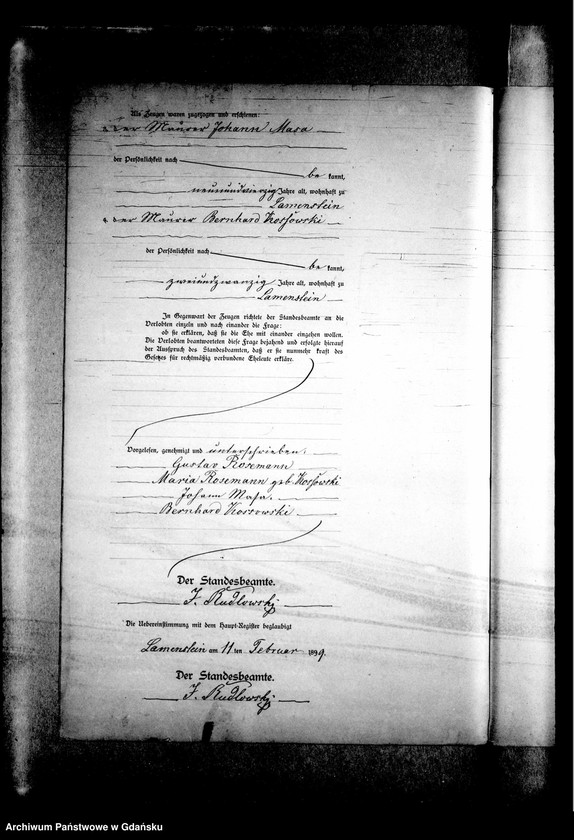 Als Zeugen waren zugezogen und erschienen:
der Maurer Johann Masa
der Persönlichkeit nach
be kannt,
neunundvierzig Jahre alt, wohnhaft zu
Lamenstein
der Maurer Bernhard Kossowski
der Persönlichkeit nach
be kannt,
zweiundzwanzig Jahre alt, wohnhaft zu
Lamenstein
In Gegenwart der Zeugen richtete der Standesbeamte an die
Verlobten einzeln und nach einander die Frage:
ob sie erklären, daß sie die Ehe mit einander eingehen wollen.
Die Verlobten beantworteten diese Frage bejahend und erfolgte hierauf
der Ausspruch des Standesbeamten, daß er sie nunmehr kraft des
Gesetzes für rechtmäßig verbundene Eheleute erkläre.
Vorgelesen, genehmigt und unterschrieben.
Gustav Rosemann
Maria Rosemann geb. Kossowski
Johann Masa.
Bernhard Kossowski
Der Standesbeamte.
J. Rudlowski
Die Uebereinstimmung mit dem Haupt-Register beglaubigt
Lamenstein am 11 ten Februar 1899.
Der Standesbeamte.
J. Rudlowski
Archiwum Państwowe w Gdańsku